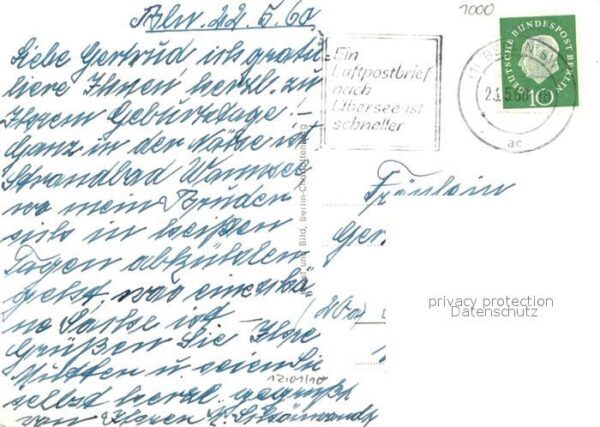 Bln. 22.5.60
Liebe Gertrud ich gratu-
liere Ihnen herzl. zu
Ihrem Geburtstage! –
Ganz in der Nähe ist
Strandbad Wannsee
wo mein Bruder
sich in heißen
Tagen abkühlen
geht, was eine schö
ne Sache ist –
Grüßen Sie Ihre
Mutter u seien Sie
selbst herzl. gegrüßt
von Ihrer
1000
Ein
Luftpostbrief
nach
Übersee ist
schneller
BERLIN
23.5.60
ac
DEUTSCHE BUNDESPOST BERLIN
10
und Bild, Berlin-Charlottenburg
Fräulein
Ger
privacy protection
Datenschutz